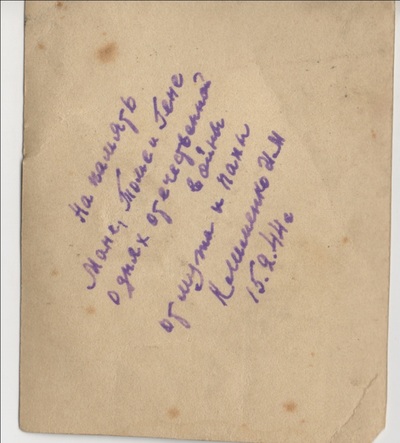 На память
Мане, Томе и Гене
о днях отечественной
войны
от мужа и папы
15.2.44 г